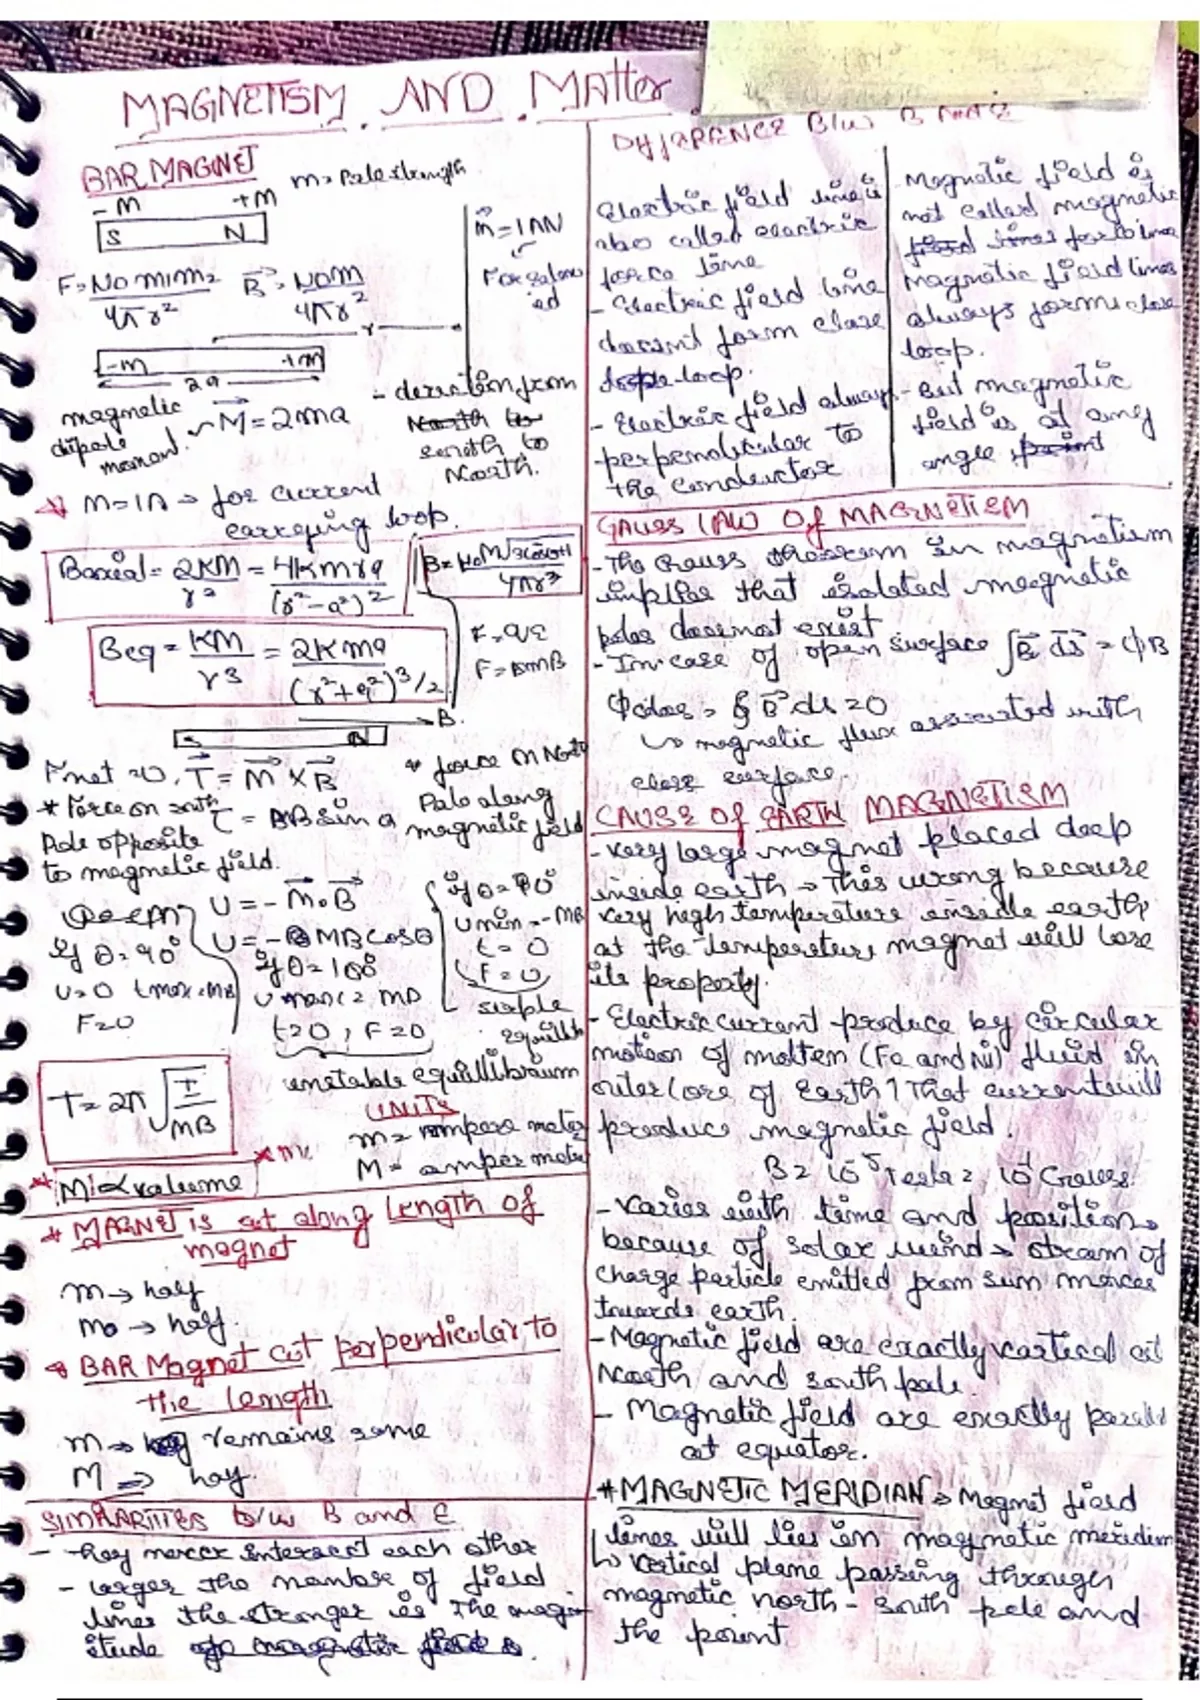 MAGNETISM AND Matter
BAR MAGNET
m = Pole strength
-m +m
S N
F = μ0 m1m2 / 4πr² B = μ0m / 4πr²
m = 1AN
For solenoied
r
-m +m
2a
magnetic dipole moment M = 2ma
- derection from
North to
south to
North.
M = IA → for current
carreying loop.
Baxial = 2KM / r³ = 4Kmra / (r²-a²)²
Beq = KM / r³ = 2Kma / (r²+a²)^3/2
F = qE
F = mB
B
S N
Fnet = 0, T = M × B
* Force on south
Pole opposite
to magnetic field.
* force on North
Pole along
magnetic field
U = - M.B
U = - MB cosθ
If θ = 90°
U = 0 tmax = MB
F = 0
If θ = 180°
Umax = MB
t = 0, F = 0
unstable equillibrium
Umin = -MB
t = 0
F = 0
T = 2π √I / MB
UNITS
m = ampere meter
M = amper mete
M ∝ valume
* MAGNET is cut along Length of
magnet
m → half
mo → half.
* BAR Magnet cut perpendicular to
the length
m → remains same
M ⇒ hay.
SIMPARITIES b/w B and E
- they never intersect each other
- larger the nombre of field
lines the stronger is The magn
itude
DIFFERENCE B/W B AND E
Electric field line is
also called electric
force line
- Electric field line
doesn't form close
loop.
- Electric field always
perpendicular to
the conductor
- Magnetic field is
not called magnetic
force line
magnetic field lines
always forms close
loop.
- But magnetic
field is at any
angle
GAUSS LAW OF MAGNETISM
- The Gauss theorem in magnetism
implies that isolated magnetic
poles does not exist
- In case of open surface ∫B.dS = φB
φclos = ∮ B.ds = 0
↳ magnetic flux associated with
close surface.
CAUSE Of EARTH MAGNETISM
- Very large magnet placed deep
inside earth → This wrong because
very high temperature inside earth
at the temperature magnet will lose
its property.
- Electric current produce by circular
motion of molten (Fe and Ni) fluid in
outer core of Earth that current will
produce magnetic field.
B = 10⁻⁵ Tesla = 10⁻¹ Gauss
- Varies with time and position
because of solar wind → stream of
charge particle emitted from sun moves
towards earth.
- Magnetic field are exactly vertical at
North and south pole.
- Magnetic field are exactly parall
at equator.
* MAGNETIC MERIDIAN → Magnet field
lines will lies in magnetic meridian
↳ Vertical plane passing through
magnetic north - south pole and
the point